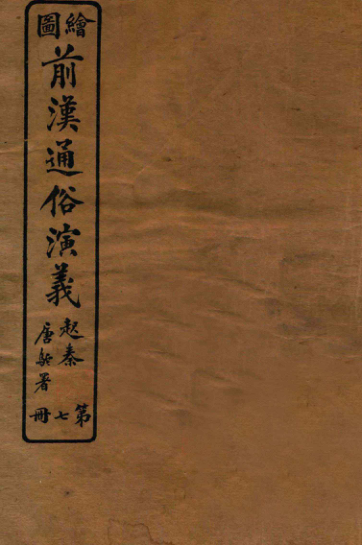 繪圖
前漢通俗演義
起秦
唐駝署
第七冊